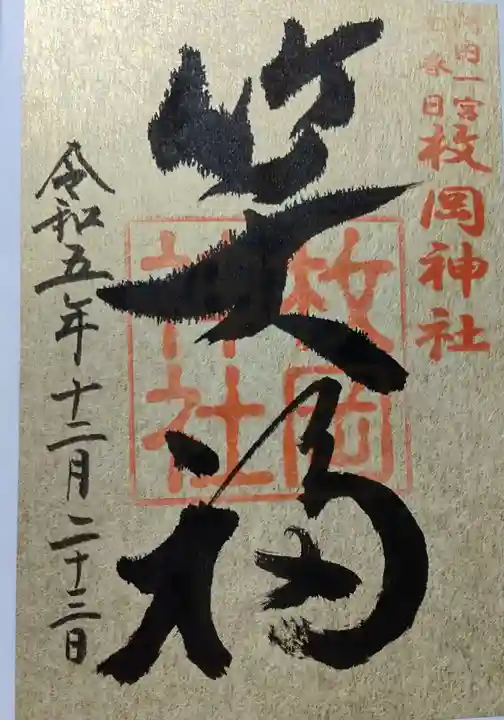 河内一宮
元春日
枚岡神社
笑福
枚岡
神社
令和五年十二月二十三日